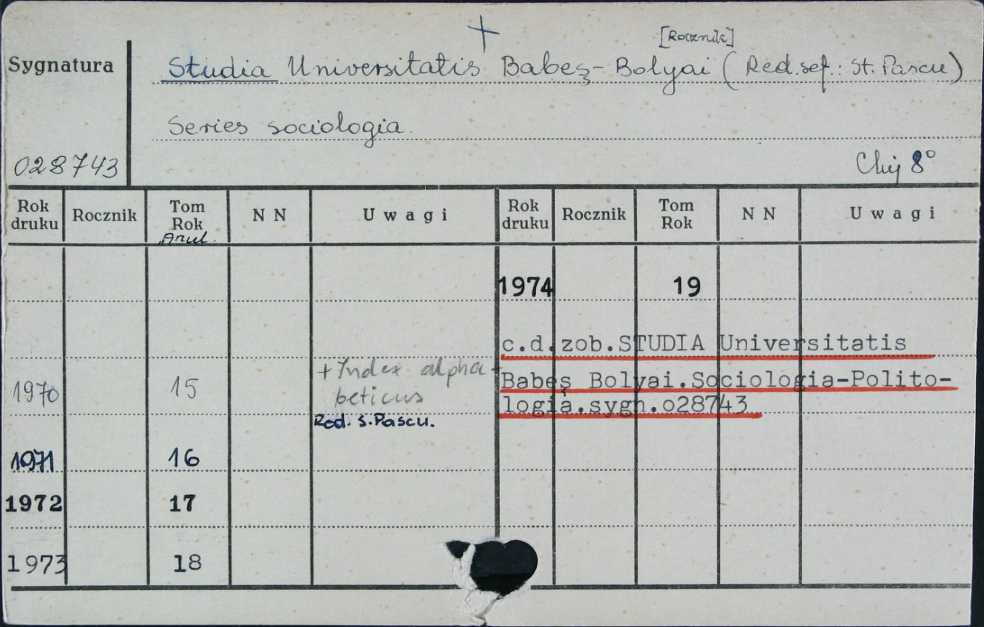 [Rocznik]
Sygnatura
Studia Universitatis Babeş-Bolyai (Red. sef.: St. Pascu)
Series sociologia.
028743
Cluj 8°
Rok druku Rocznik Tom Rok NN Uwagi Rok druku Rocznik Tom Rok NN Uwagi
Anul
1974 19
c.d.zob.STUDIA Universitatis
1970 15 + Index alpha+
beticus
Babeş Bolyai.Sociologia-Polito-
logia.sygn.028743
Red. S. Pascu.
1971 16
1972 17
1973 18